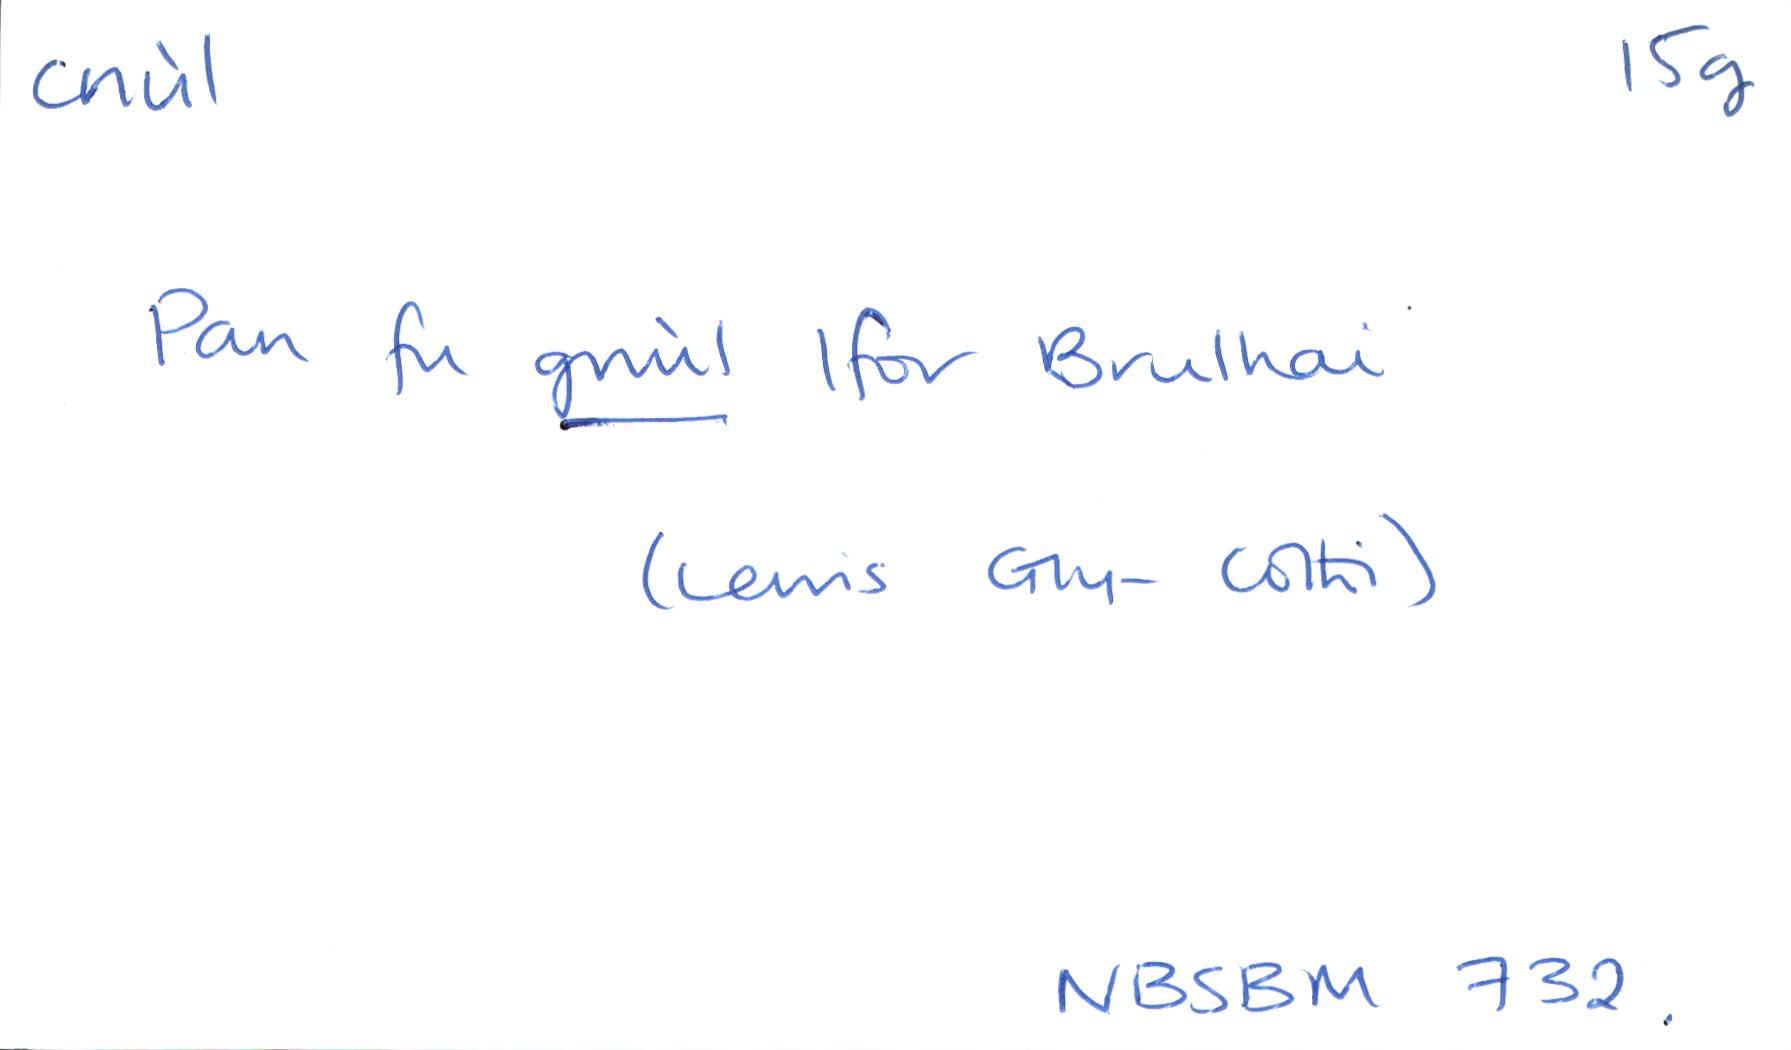 cnùl 15g
Pan fu gnùl Ifor Brulhai
(Lewis Glyn Cothi)
NBSBM 732.